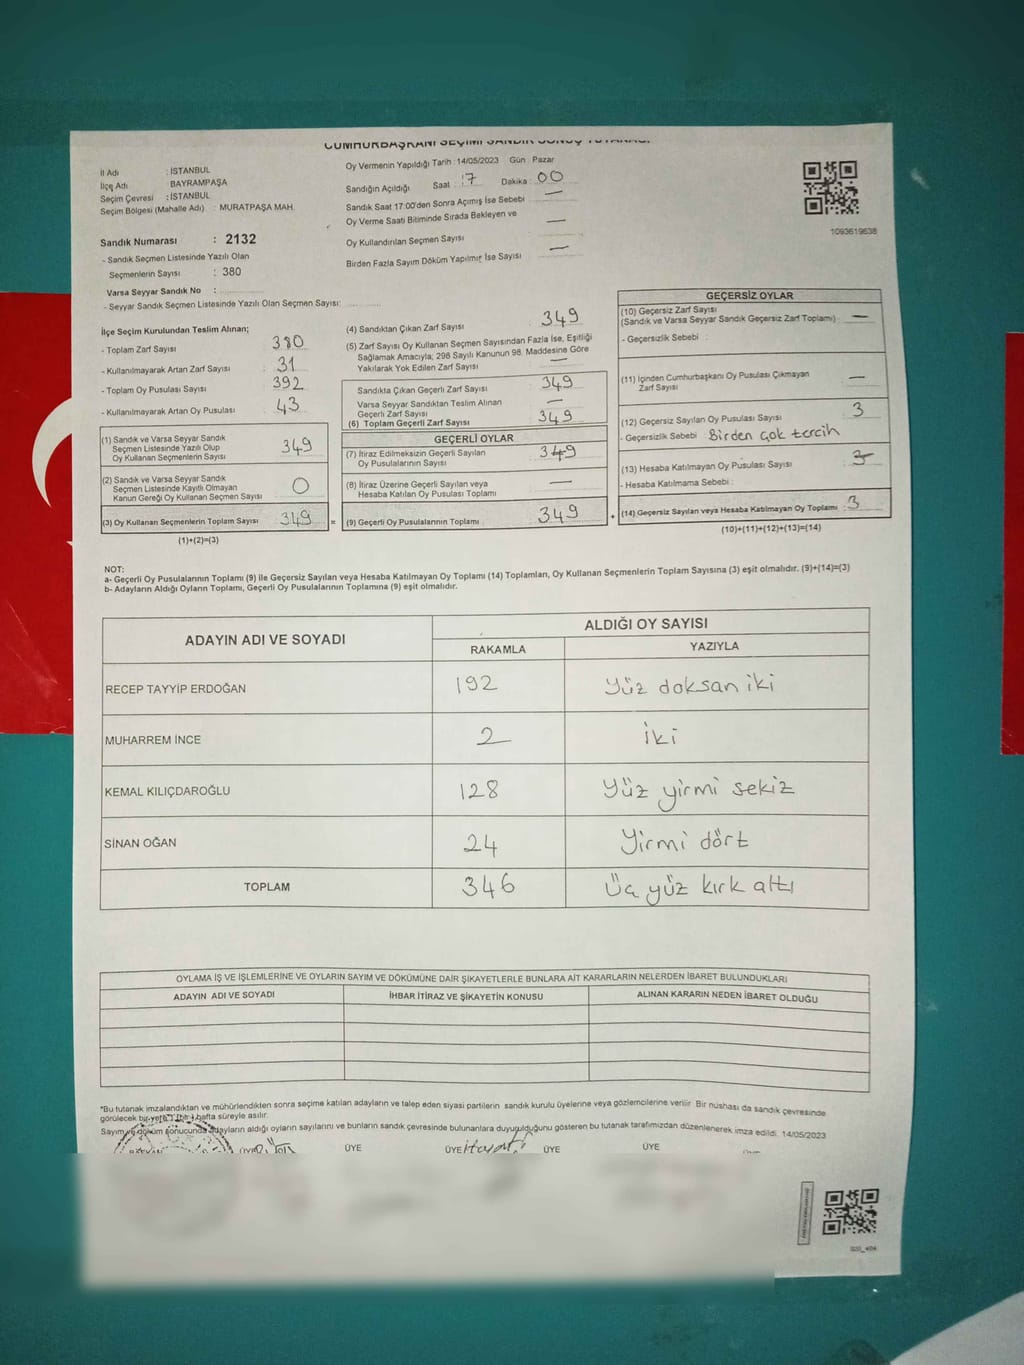 CUMHURBAŞKANI SEÇİMİ SANDIK SONUÇ TUTANAĞI
İl Adı : İSTANBUL
İlçe Adı : BAYRAMPAŞA
Seçim Çevresi : İSTANBUL
Seçim Bölgesi (Mahalle Adı) : MURATPAŞA MAH.
Sandık Numarası : 2132
- Sandık Seçmen Listesinde Yazılı Olan
Seçmenlerin Sayısı : 380
Varsa Seyyar Sandık No :
- Seyyar Sandık Seçmen Listesinde Yazılı Olan Seçmen Sayısı:
Oy Vermenin Yapıldığı Tarih : 14/05/2023 Gün : Pazar
Sandığın Açıldığı Saat : 17 Dakika : 00
Sandık Saat 17:00'den Sonra Açımış İse Sebebi —
Oy Verme Saati Bitiminde Sırada Bekleyen ve
Oy Kullandırılan Seçmen Sayısı —
Birden Fazla Sayım Döküm Yapılmış İse Sayısı —
1093619638
İlçe Seçim Kurulundan Teslim Alınan;
- Toplam Zarf Sayısı 380
- Kullanılmayarak Artan Zarf Sayısı 31
- Toplam Oy Pusulası Sayısı 392
- Kullanılmayarak Artan Oy Pusulası 43
(1) Sandık ve Varsa Seyyar Sandık
Seçmen Listesinde Yazılı Olup
Oy Kullanan Seçmenlerin Sayısı 349
(2) Sandık ve Varsa Seyyar Sandık
Seçmen Listesinde Kayıtlı Olmayan
Kanun Gereği Oy Kullanan Seçmen Sayısı 0
(3) Oy Kullanan Seçmenlerin Toplam Sayısı 349 =
(1)+(2)=(3)
(4) Sandıktan Çıkan Zarf Sayısı 349
(5) Zarf Sayısı Oy Kullanan Seçmen Sayısından Fazla İse, Eşitliği
Sağlamak Amacıyla; 298 Sayılı Kanunun 98. Maddesine Göre
Yakılarak Yok Edilen Zarf Sayısı —
Sandıkta Çıkan Geçerli Zarf Sayısı 349
Varsa Seyyar Sandıktan Teslim Alınan
Geçerli Zarf Sayısı —
(6) Toplam Geçerli Zarf Sayısı 349
GEÇERLİ OYLAR
(7) İtiraz Edilmeksizin Geçerli Sayılan
Oy Pusulalarının Sayısı 349
(8) İtiraz Üzerine Geçerli Sayılan veya
Hesaba Katılan Oy Pusulası Toplamı —
(9) Geçerli Oy Pusulalarının Toplamı 349 +
GEÇERSİZ OYLAR
(10) Geçersiz Zarf Sayısı
(Sandık ve Varsa Seyyar Sandık Geçersiz Zarf Toplamı) —
- Geçersizlik Sebebi :
(11) İçinden Cumhurbaşkanı Oy Pusulası Çıkmayan
Zarf Sayısı —
(12) Geçersiz Sayılan Oy Pusulası Sayısı 3
- Geçersizlik Sebebi Birden çok tercih
(13) Hesaba Katılmayan Oy Pusulası Sayısı
- Hesaba Katılmama Sebebi :
(14) Geçersiz Sayılan veya Hesaba Katılmayan Oy Toplamı : 3
(10)+(11)+(12)+(13)=(14)
NOT:
a- Geçerli Oy Pusulalarının Toplamı (9) ile Geçersiz Sayılan veya Hesaba Katılmayan Oy Toplamı (14) Toplamları, Oy Kullanan Seçmenlerin Toplam Sayısına (3) eşit olmalıdır. (9)+(14)=(3)
b- Adayların Aldığı Oyların Toplamı, Geçerli Oy Pusulalarının Toplamına (9) eşit olmalıdır.
ADAYIN ADI VE SOYADI ALDIĞI OY SAYISI
RAKAMLA YAZIYLA
RECEP TAYYİP ERDOĞAN 192 Yüz doksan iki
MUHARREM İNCE 2 iki
KEMAL KILIÇDAROĞLU 128 Yüz yirmi sekiz
SİNAN OĞAN 24 Yirmi dört
TOPLAM 346 Üç yüz kırk altı
OYLAMA İŞ VE İŞLEMLERİNE VE OYLARIN SAYIM VE DÖKÜMÜNE DAİR ŞİKAYETLERLE BUNLARA AİT KARARLARIN NELERDEN İBARET BULUNDUKLARI
ADAYIN ADI VE SOYADI İHBAR İTİRAZ VE ŞİKAYETİN KONUSU ALINAN KARARIN NEDEN İBARET OLDUĞU
*Bu tutanak imzalandıktan ve mühürlendikten sonra seçime katılan adayların ve talep eden siyasi partilerin sandık kurulu üyelerine veya gözlemcilerine verilir. Bir nüshası da sandık çevresinde
görülecek bir yere 1 (bir) hafta süreyle asılır.
Sayım ve döküm sonucunda adayların aldığı oyların sayılarını ve bunların sandık çevresinde bulunanlara duyurulduğunu gösteren bu tutanak tarafımızdan düzenlenerek imza edildi. 14/05/2023
ÜYE ÜYE ÜYE ÜYE